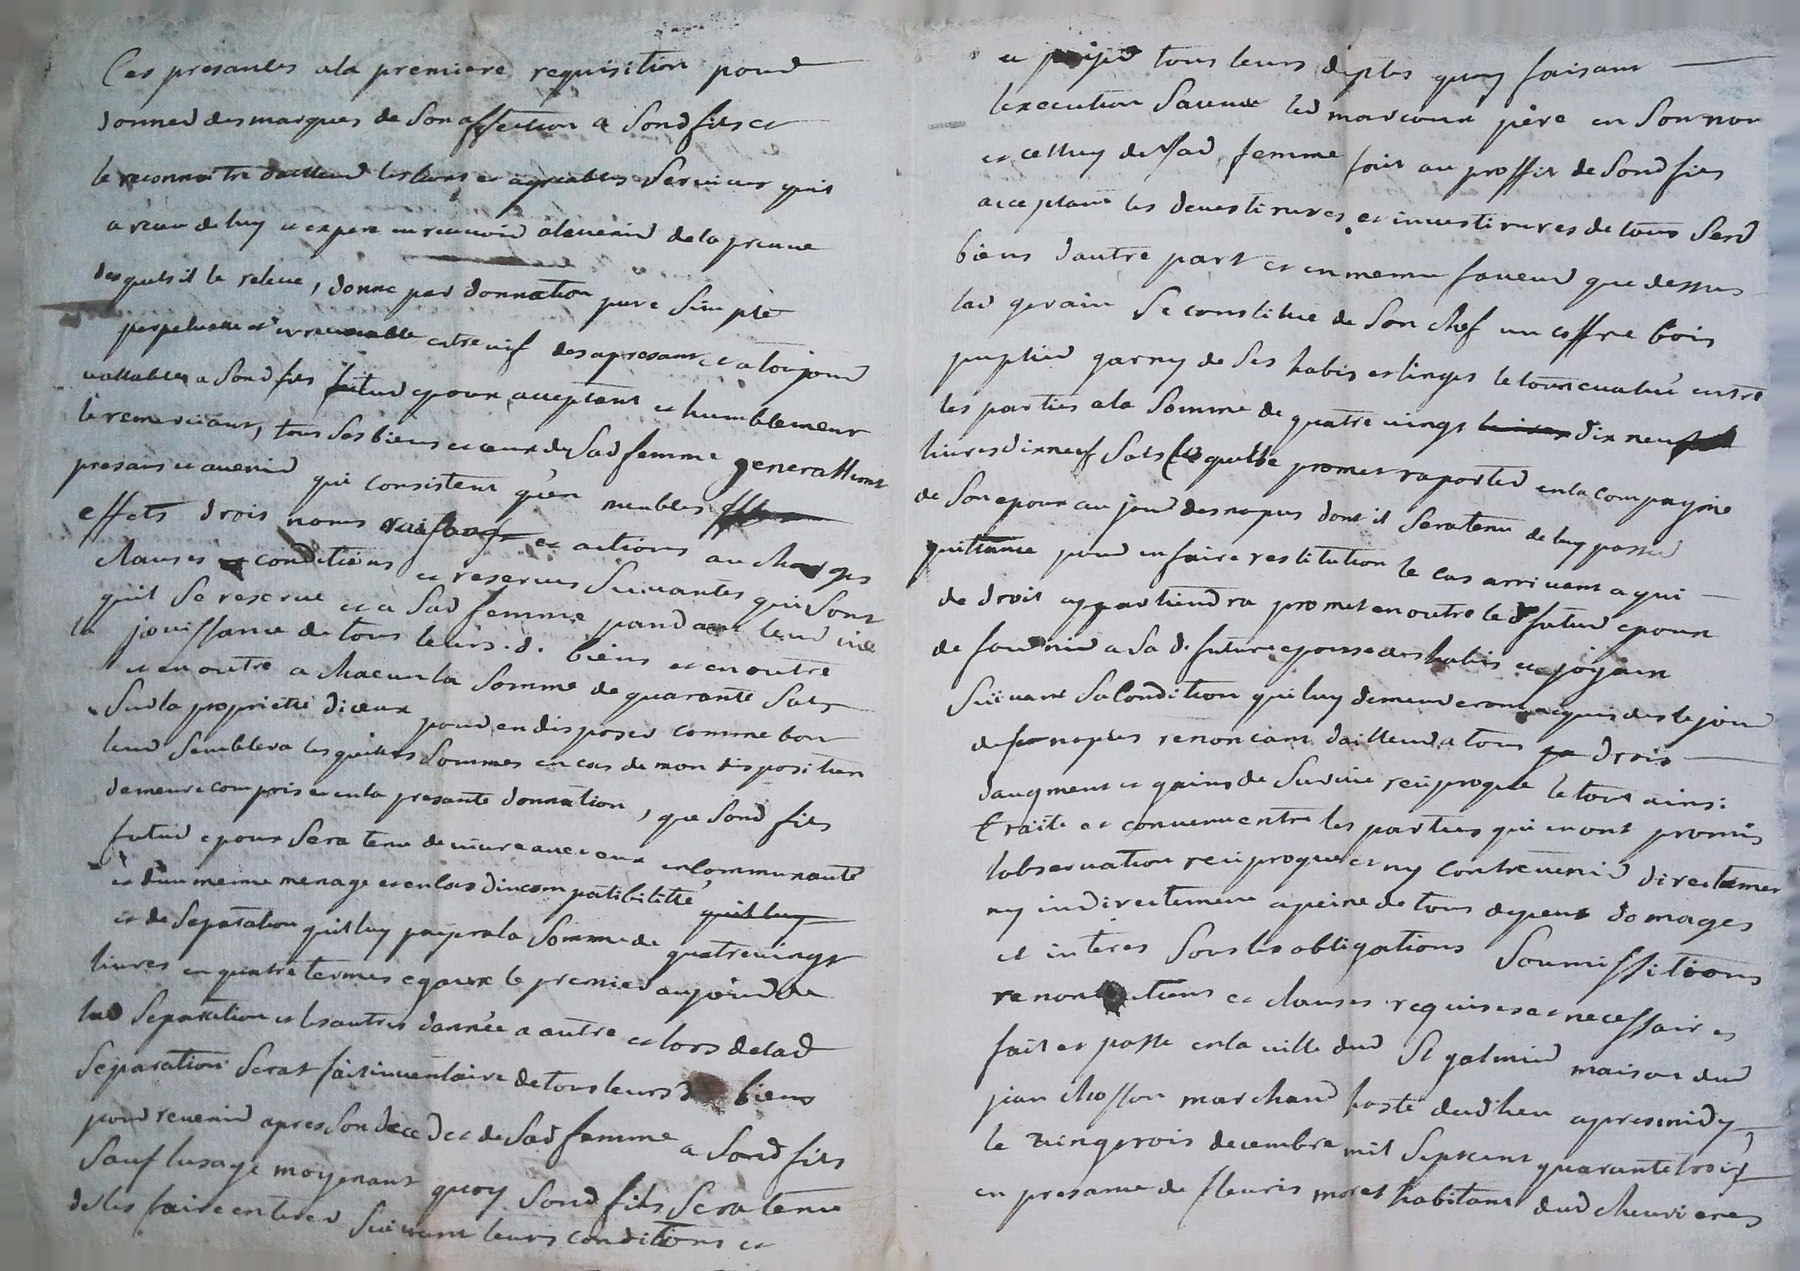 Ces presantes ala premiere requisition pour
donner des marques de son affection a sond fils et
le reconnoitre dailleur les bons et agreables services quil
a recu de luy et expere en recevoir alavenir de la preuve
desquels il le releve, donne par donnation pure simple
perpetuelle et irrevocable entre vif des apresant et a toujour
vallables a sond fils futur epoux acceptant et humblement
le remerciant, tous ses biens et ceux de sad femme generallement
presans et avenir qui consistent qu'en meubles
effets drois noms raisons et actions au charges
clauses et conditions et reserves suivantes qui sont
quil se reserve et a sad femme pandant leur vie
la jouissance de tous leurs d. biens et en outre
et en outre a chacun la somme de quarante sols
sur la propriette diceux pour en disposer comme bon
leur semblera lesquelles sommes en cas de non disposition
demeure comprise en la presante donnation, que sond fils
futur epoux sera tenu de vivre avec eux en communauté
et dun meme menage et en cas dincompatibilitté quil luy
et de separation quil luy payera la somme de quatre vingt
livres en quatre termes egaux le premier au jour de
lad separation et les autres d'année a autre et lors de lad
separation serat fait inventaire de tous leurs d biens
pour revenir apres son deced et de sad femme a sond fils
sauf lusage moyenant quoy sond fils sera tenu
de les faire enterer suivant leurs conditions et
et payer tous leurs deptes quoy faisant
lexecution led marcoux père en son nom
et celluy de sad femme fait au proffit de sond fils
acceptant les devestitures et investitures de tous sesd
biens d'autre part et en meme faveur que dessus
lad gerain se constitue de son chef un coffre bois
puplier garny de ses habis et linges le tout evalué entre
les parties a la somme de quatre vingt livres dix neuf
livres dix neuf sols lequelle promet raporter en la compagnie
de son epoux au jour des nopces dont il sera tenu de luy passer
quittance pour en faire restitution le cas arrivent a qui
de droit appartiendra promet en outre led futur epoux
de fournir a sa d. future epouse des habis et joyaux
suivant sa condition qui luy demeureront acquis des le jour
des nopces renoncant dailleur a tous drois
daugment et gains de survie reciproque le tout ainsi
traité et convenu entre les parties qui en ont promis
lobservation reciproque et ny contrevenir directement
ny indirectement a peine de tous depens domages
et interes sous les obligations soumissitions
renonciations et clauses requises et necessaires
fait et passé en la ville dud St galmier maison dud
jean chosson marchand hoste dud lieu apres midy
le vingt rois decembre mil sept cent quarante trois
en presance de fleuris moret habitant dud chevrieres